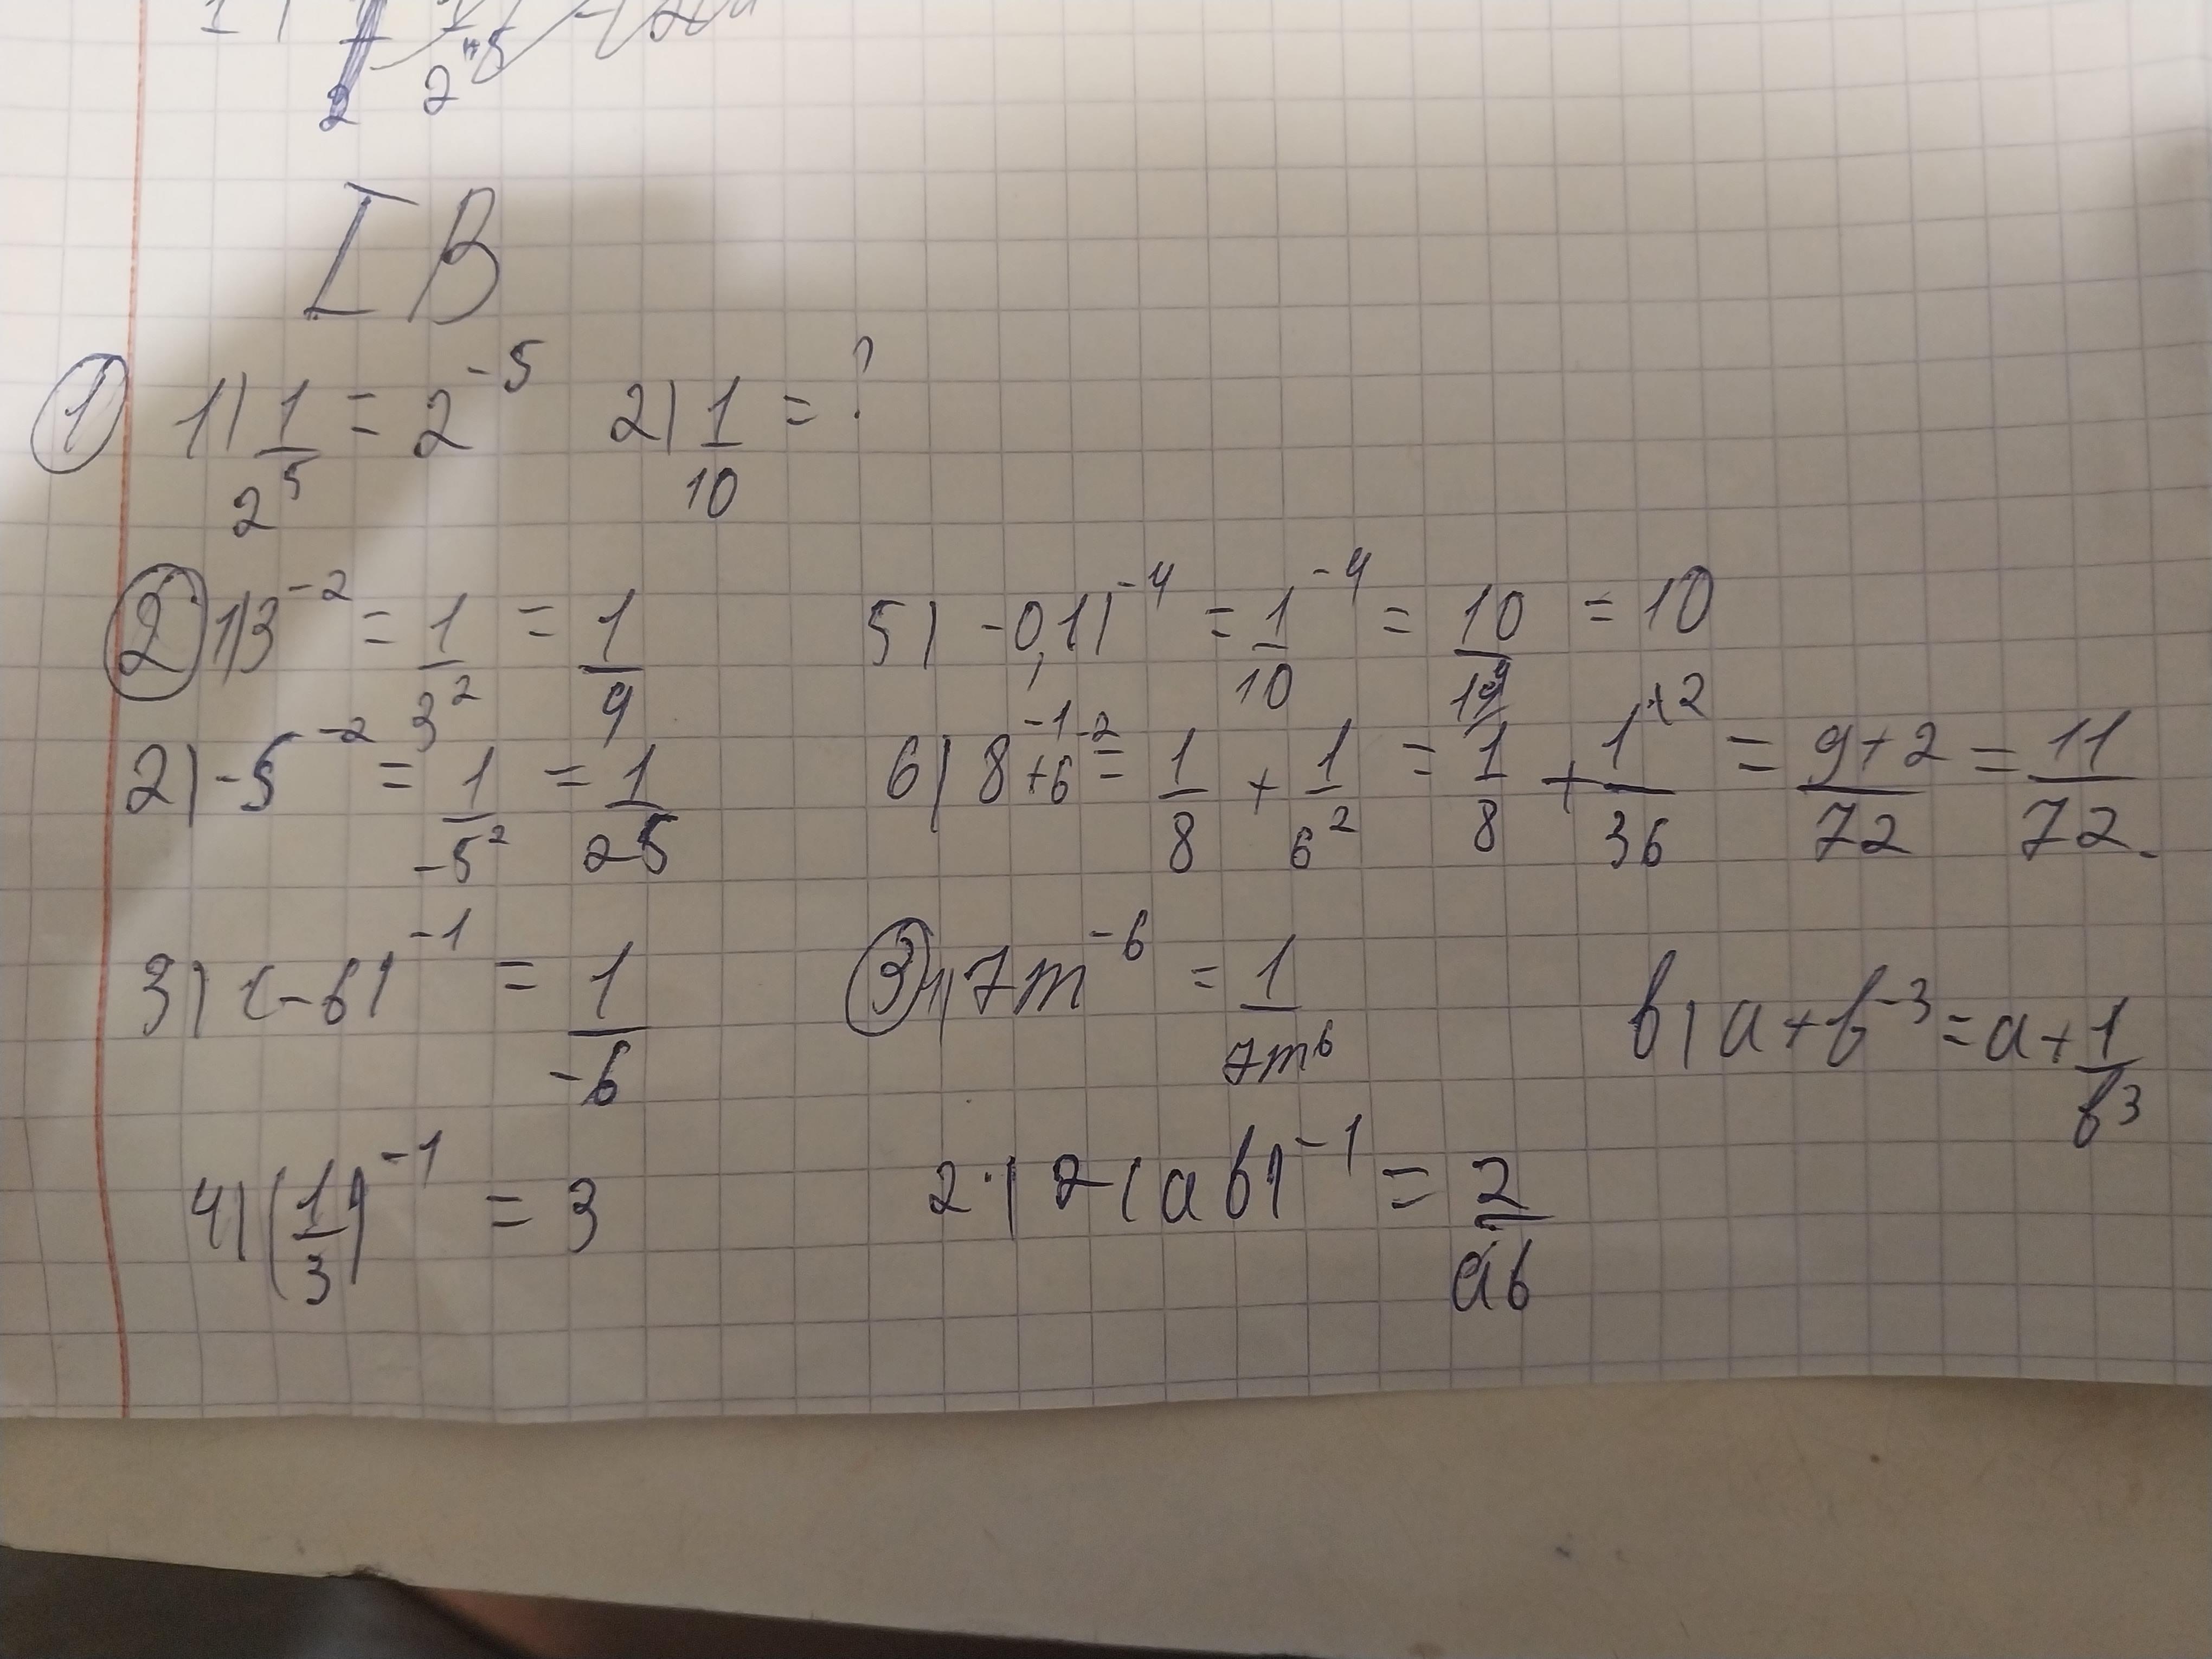 I В
① 1) 1/2^5 = 2^-5 2) 1/10 = ?
② 1) 3^-2 = 1/3^2 = 1/9
5) -0,1)^-4 = 1/10^-4 = 10/1^4 = 10
2) -5^-2 = 1/-5^2 = 1/25
6) 8^-1 + 6^-2 = 1/8 + 1/6^2 = 1/8 + 1/36^×2 = 9+2/72 = 11/72.
3) (-6)^-1 = 1/-6
③ 1) 7m^-6 = 1/7m^6
в) a+b^-3 = a+1/b^3
4) (1/3)^-1 = 3
2.) 2(ab)^-1 = 2/ab